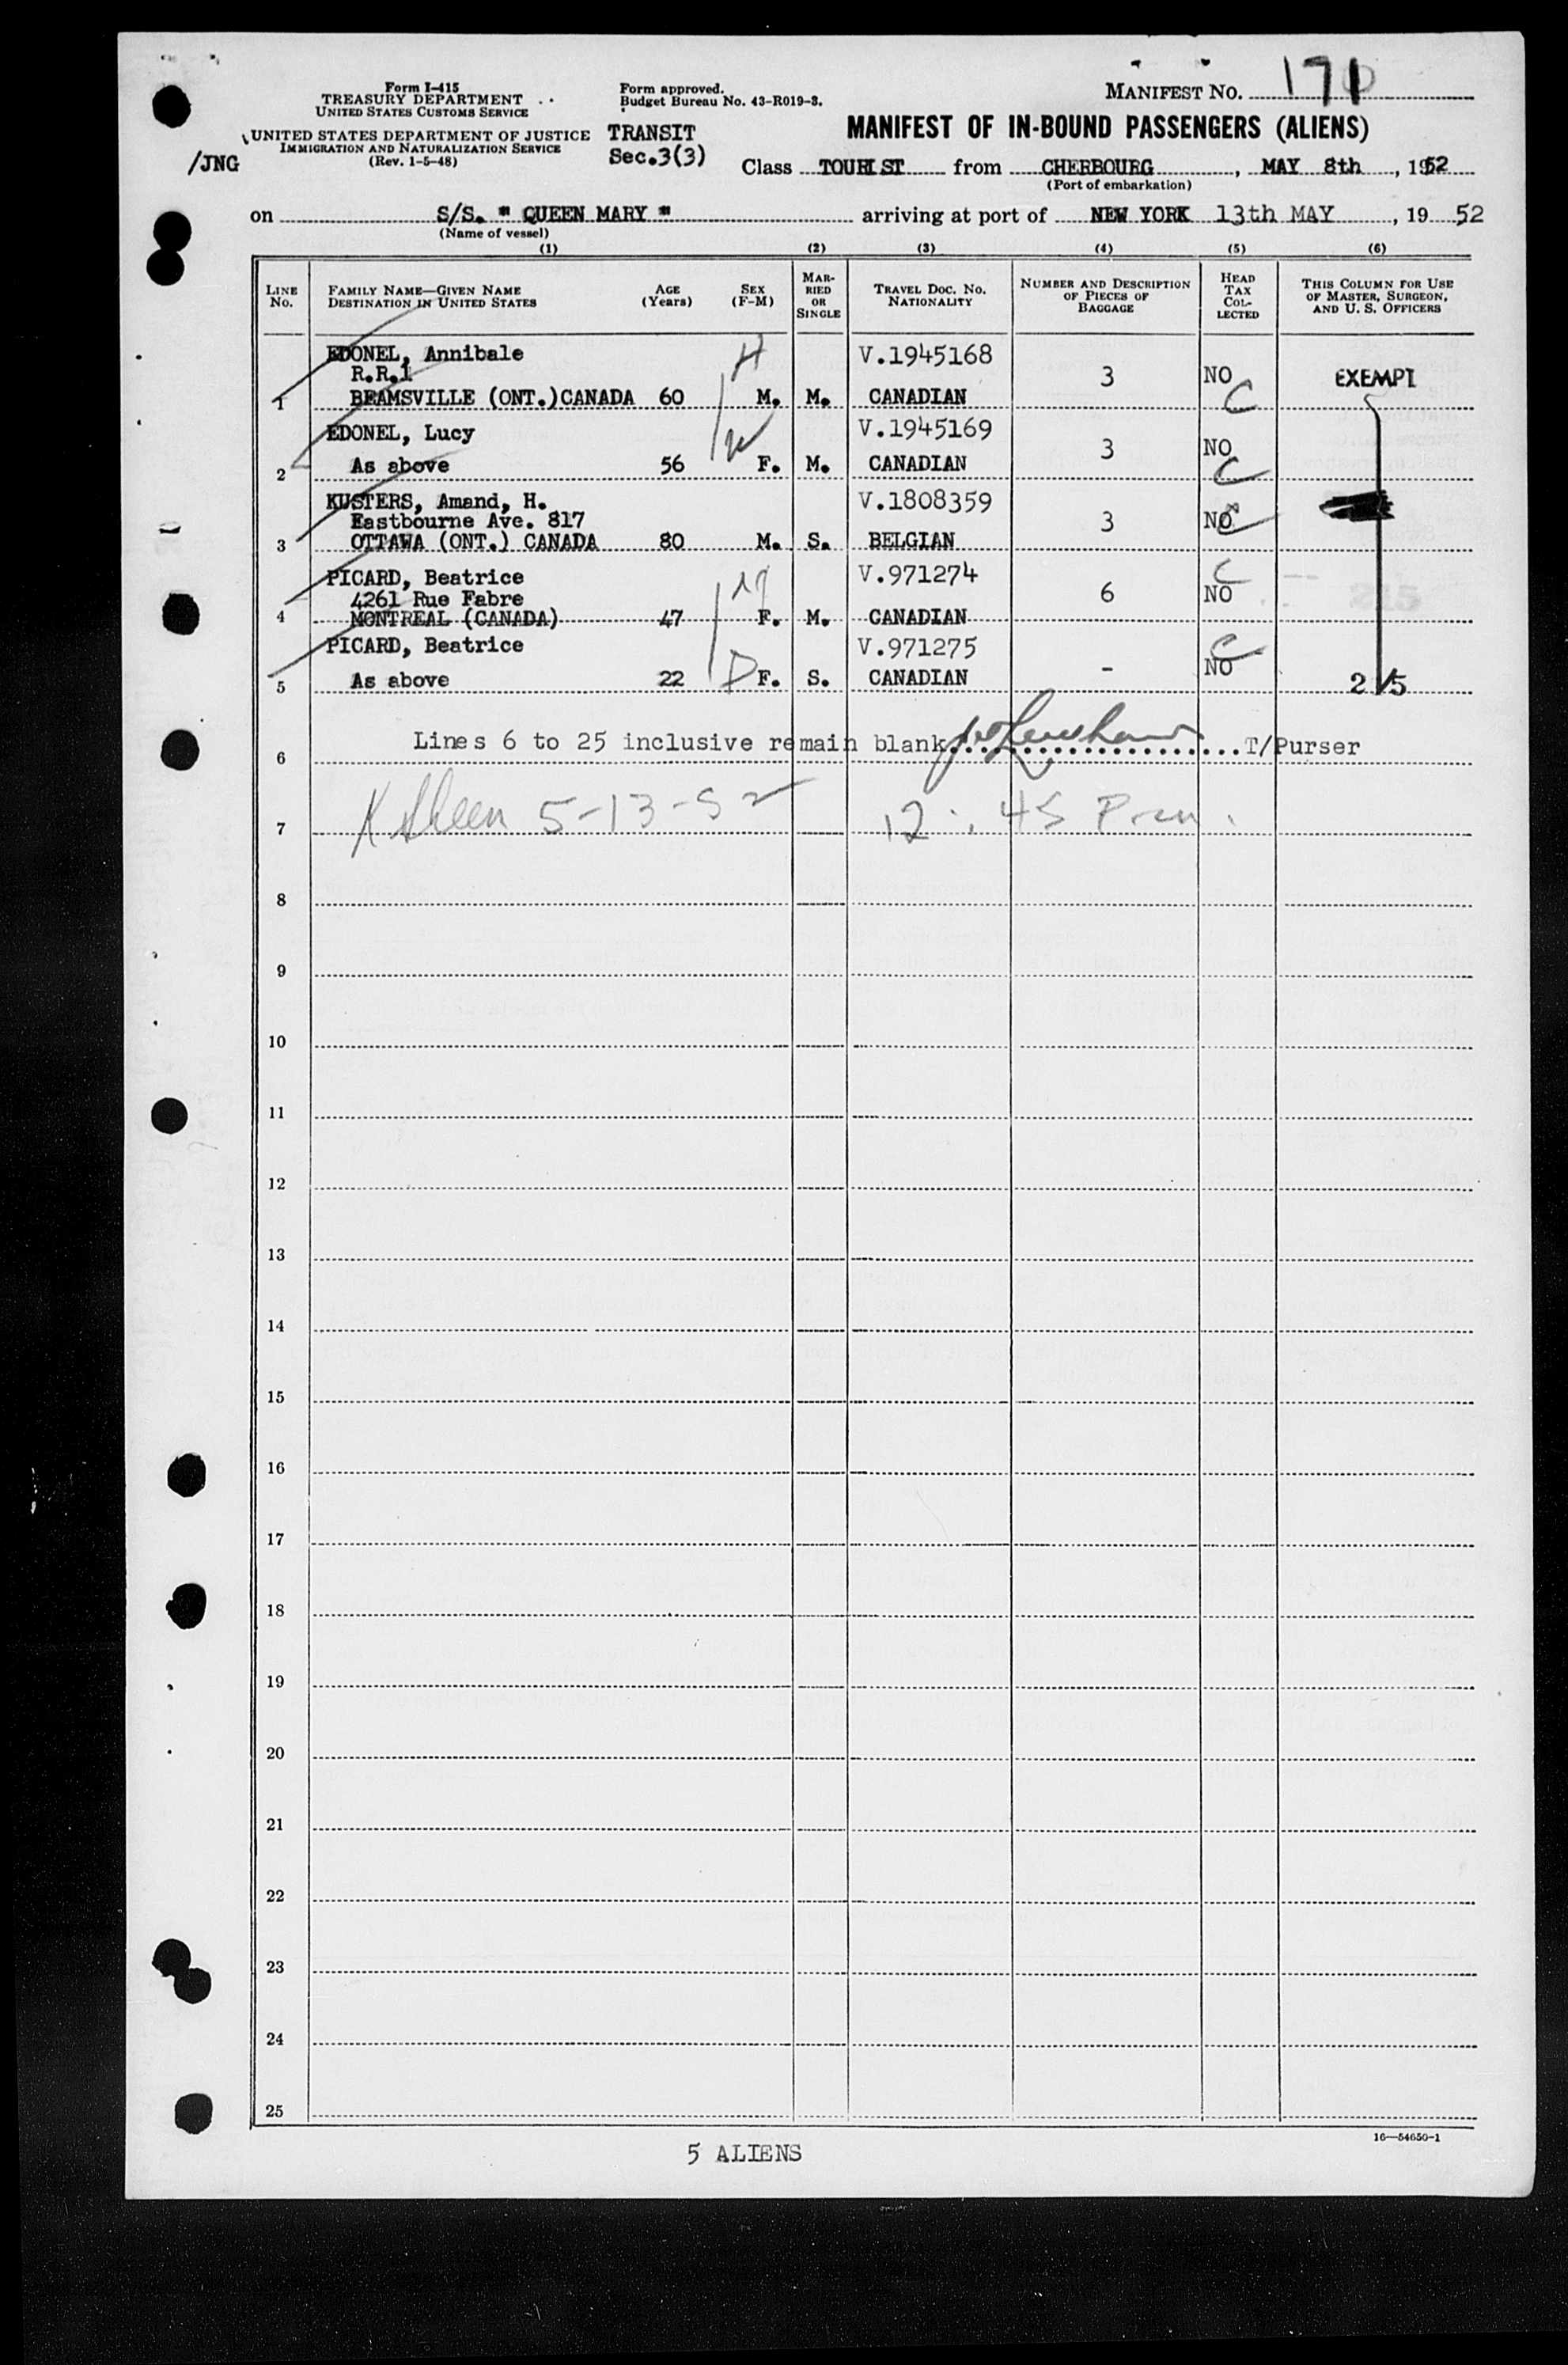 Form I-415
TREASURY DEPARTMENT
UNITED STATES CUSTOMS SERVICE
UNITED STATES DEPARTMENT OF JUSTICE
IMMIGRATION AND NATURALIZATION SERVICE
(Rev. 1-5-48)
/JNG
Form approved.
Budget Bureau No. 43-R019-3.
TRANSIT
Sec.3(3)
MANIFEST NO. 171
MANIFEST OF IN-BOUND PASSENGERS (ALIENS)
Class TOURIST from CHERBOURG, MAY 8th, 1952
(Port of embarkation)
on S/S. " QUEEN MARY " arriving at port of NEW YORK 13th MAY, 19 52
(Name of vessel)
(1) (2) (3) (4) (5) (6)
LINE NO. FAMILY NAME—GIVEN NAME DESTINATION IN UNITED STATES AGE (Years) SEX (F-M) MARRIED OR SINGLE TRAVEL DOC. NO. NATIONALITY NUMBER AND DESCRIPTION OF PIECES OF BAGGAGE HEAD TAX COLLECTED THIS COLUMN FOR USE OF MASTER, SURGEON, AND U. S. OFFICERS
EDONEL, Annibale H V.1945168
R.R.1 3 NO EXEMPT
1 BEAMSVILLE (ONT.)CANADA 60 M. M. CANADIAN C
EDONEL, Lucy W V.1945169
3 NO
2 As above 56 F. M. CANADIAN C
KUSTERS, Amand, H. V.1808359
Eastbourne Ave. 817 3 NO C
3 OTTAWA (ONT.) CANADA 80 M. S. BELGIAN
PICARD, Beatrice M V.971274 C
4261 Rue Fabre 6 NO 215
4 MONTREAL (CANADA) 47 F. M. CANADIAN
PICARD, Beatrice V.971275 C
- NO
5 As above 22 D F. S. CANADIAN 215
Lines 6 to 25 inclusive remain blank T/Purser
6
7 5-13-52 12:45 P.m.
8
9
10
11
12
13
14
15
16
17
18
19
20
21
22
23
24
25
16—54650-1
5 ALIENS